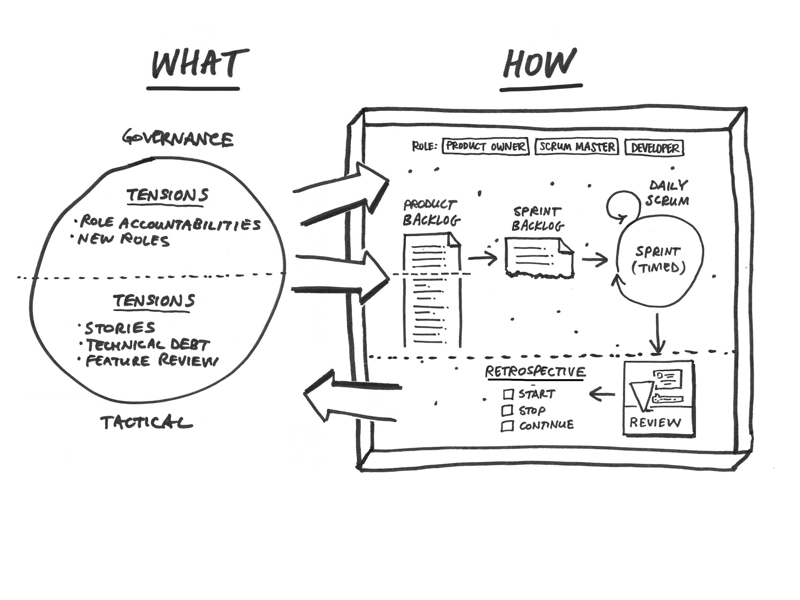 WHAT
HOW
GOVERNANCE
TENSIONS
· ROLE ACCOUNTABILITIES
· NEW ROLES
TENSIONS
· STORIES
· TECHNICAL DEBT
· FEATURE REVIEW
TACTICAL
ROLE: PRODUCT OWNER SCRUM MASTER DEVELOPER
PRODUCT
BACKLOG
SPRINT
BACKLOG
DAILY
SCRUM
SPRINT
(TIMED)
RETROSPECTIVE
START
STOP
CONTINUE
REVIEW